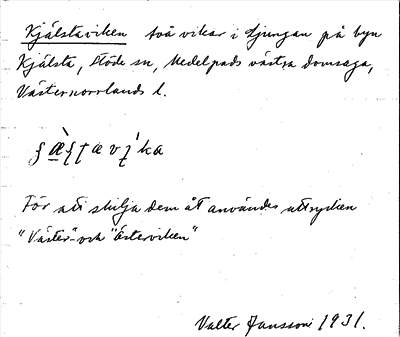 Kjälstaviken två vikar i Ljungan på byn
Kjälsta, Stöde sn, Medelpads västra domsaga,
Västernorrlands l.
För att skilja dem åt användes uttrycken
"Väster"- och "Österviken"
Valter Jansson 1931.